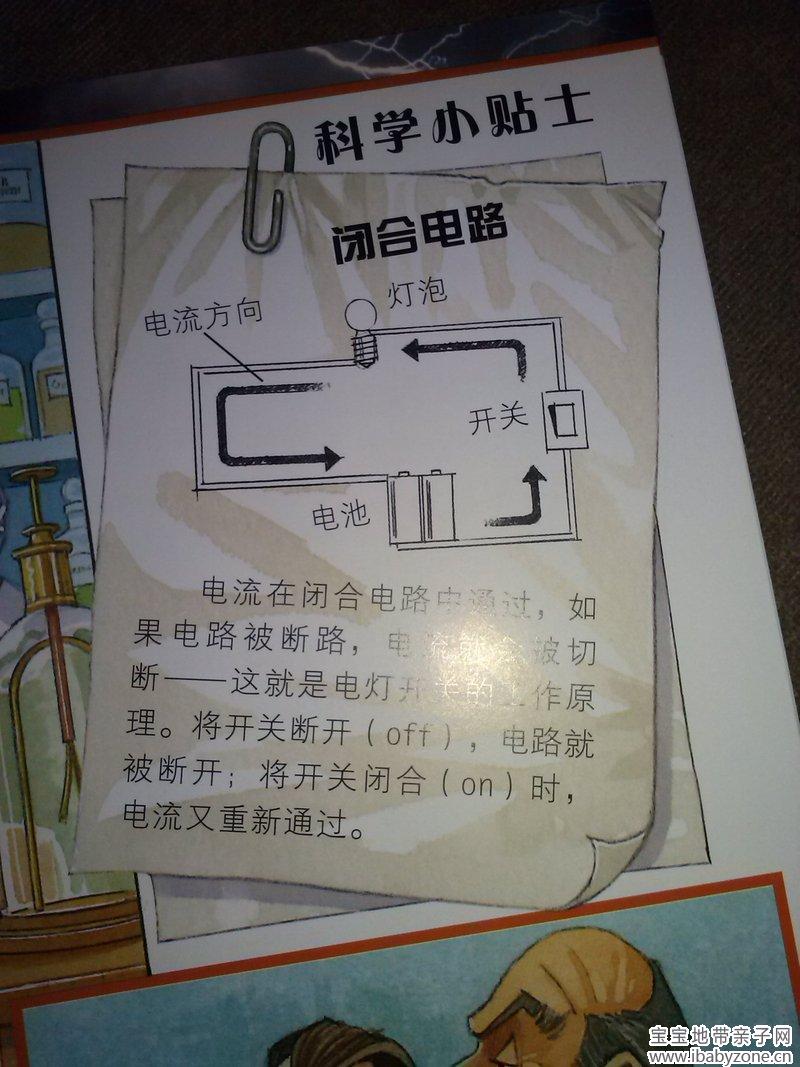 科学小贴士
闭合电路
灯泡
电流方向
开关
电池
电流在闭合电路中通过，如
果电路被断路，电流就会被切
断——这就是电灯开关的工作原
理。将开关断开（off），电路就
被断开；将开关闭合（on）时，
电流又重新通过。
宝宝地带亲子网
www.ibabyzone.cn